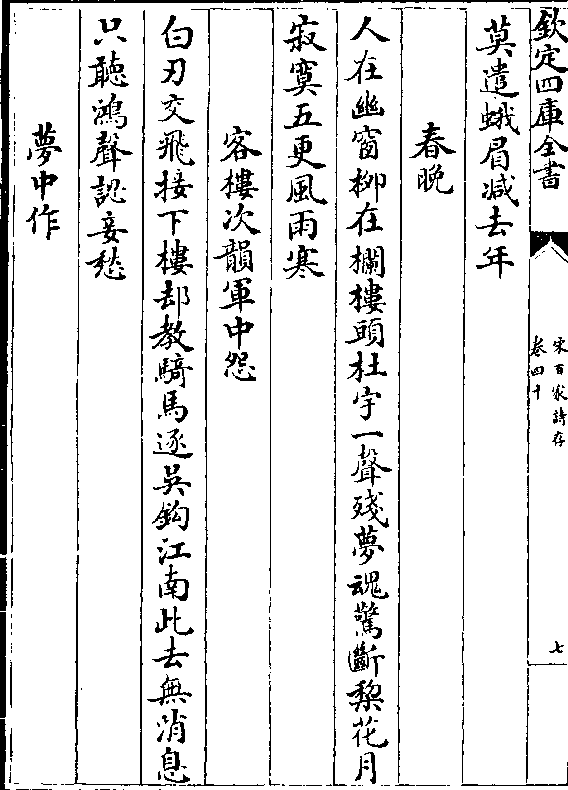 欽定四庫全書
宋百家詩存
卷四十
七
莫遣蛾眉減去年
春晚
人在幽窗栁在欄樓頭杜宇一聲殘夢魂驚斷梨花月
寂寞五更風雨寒
客樓次韻軍中怨
白刃交飛接下樓却教騎馬逐吴鈎江南此去無消息
只聽鴻聲認妾愁
夢中作